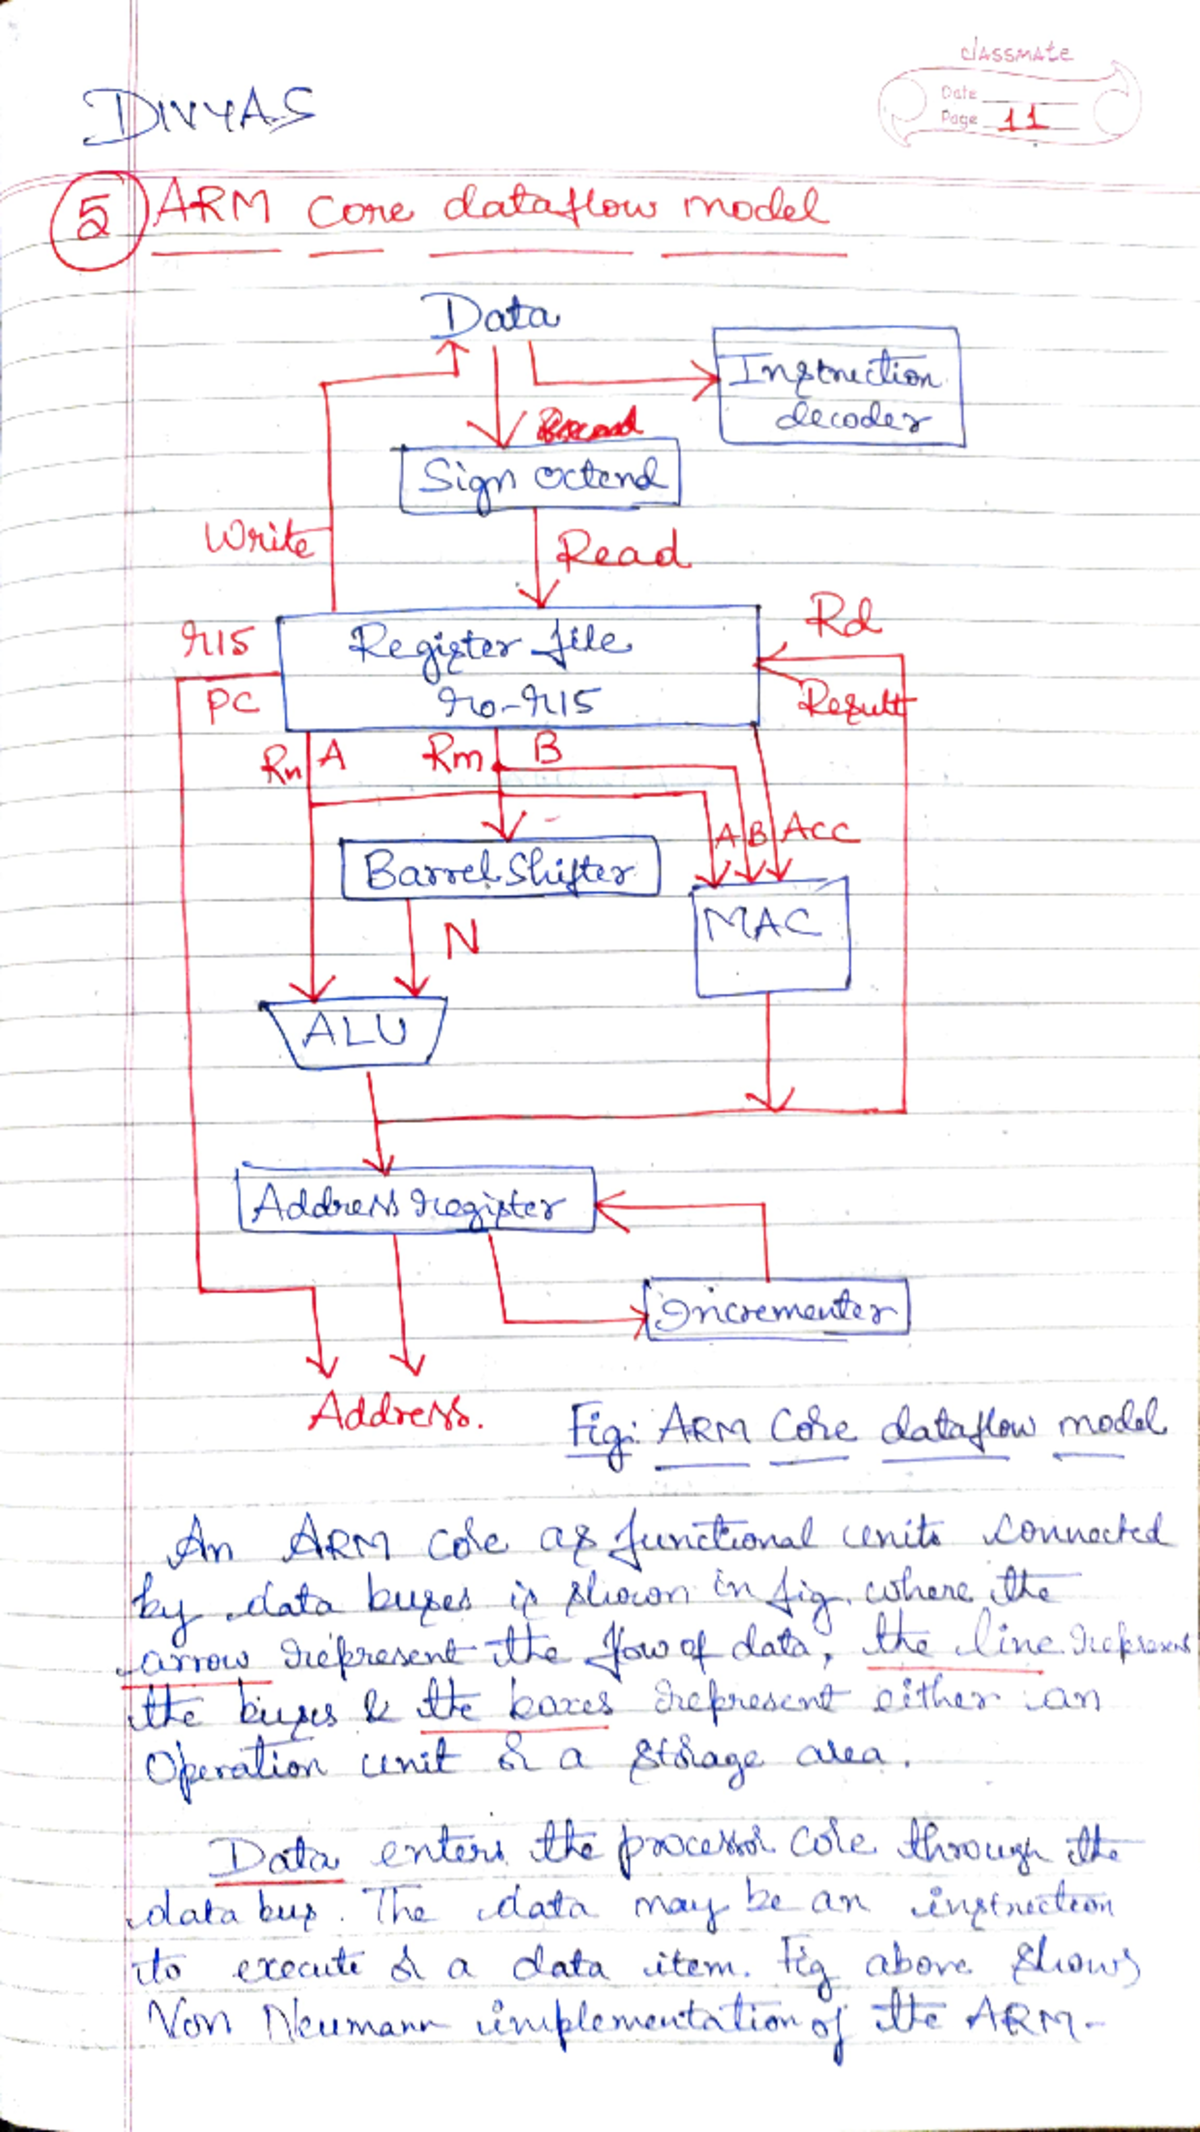 classmate
Date
Page 11
DIVYA.S
5 ARM Core dataflow model
Data
Instruction
decoder
Sign extend
Write
Read
Rd
r15
Register file
PC
r0-r15
Result
Rn A Rm B
A B Acc
Barrel Shifter
MAC
N
ALU
Address register
Incrementer
Address.
Fig: ARM Core dataflow model
An ARM core as functional units connected
by data buses is shown in fig, where the
arrow represent the flow of data, the line represent
the buses & the boxes represent either an
Operation unit or a storage area.
Data enters the processor core through the
data bus. The data may be an instruction
to execute or a data item. Fig above shows
Von Neumann implementation of the ARM-